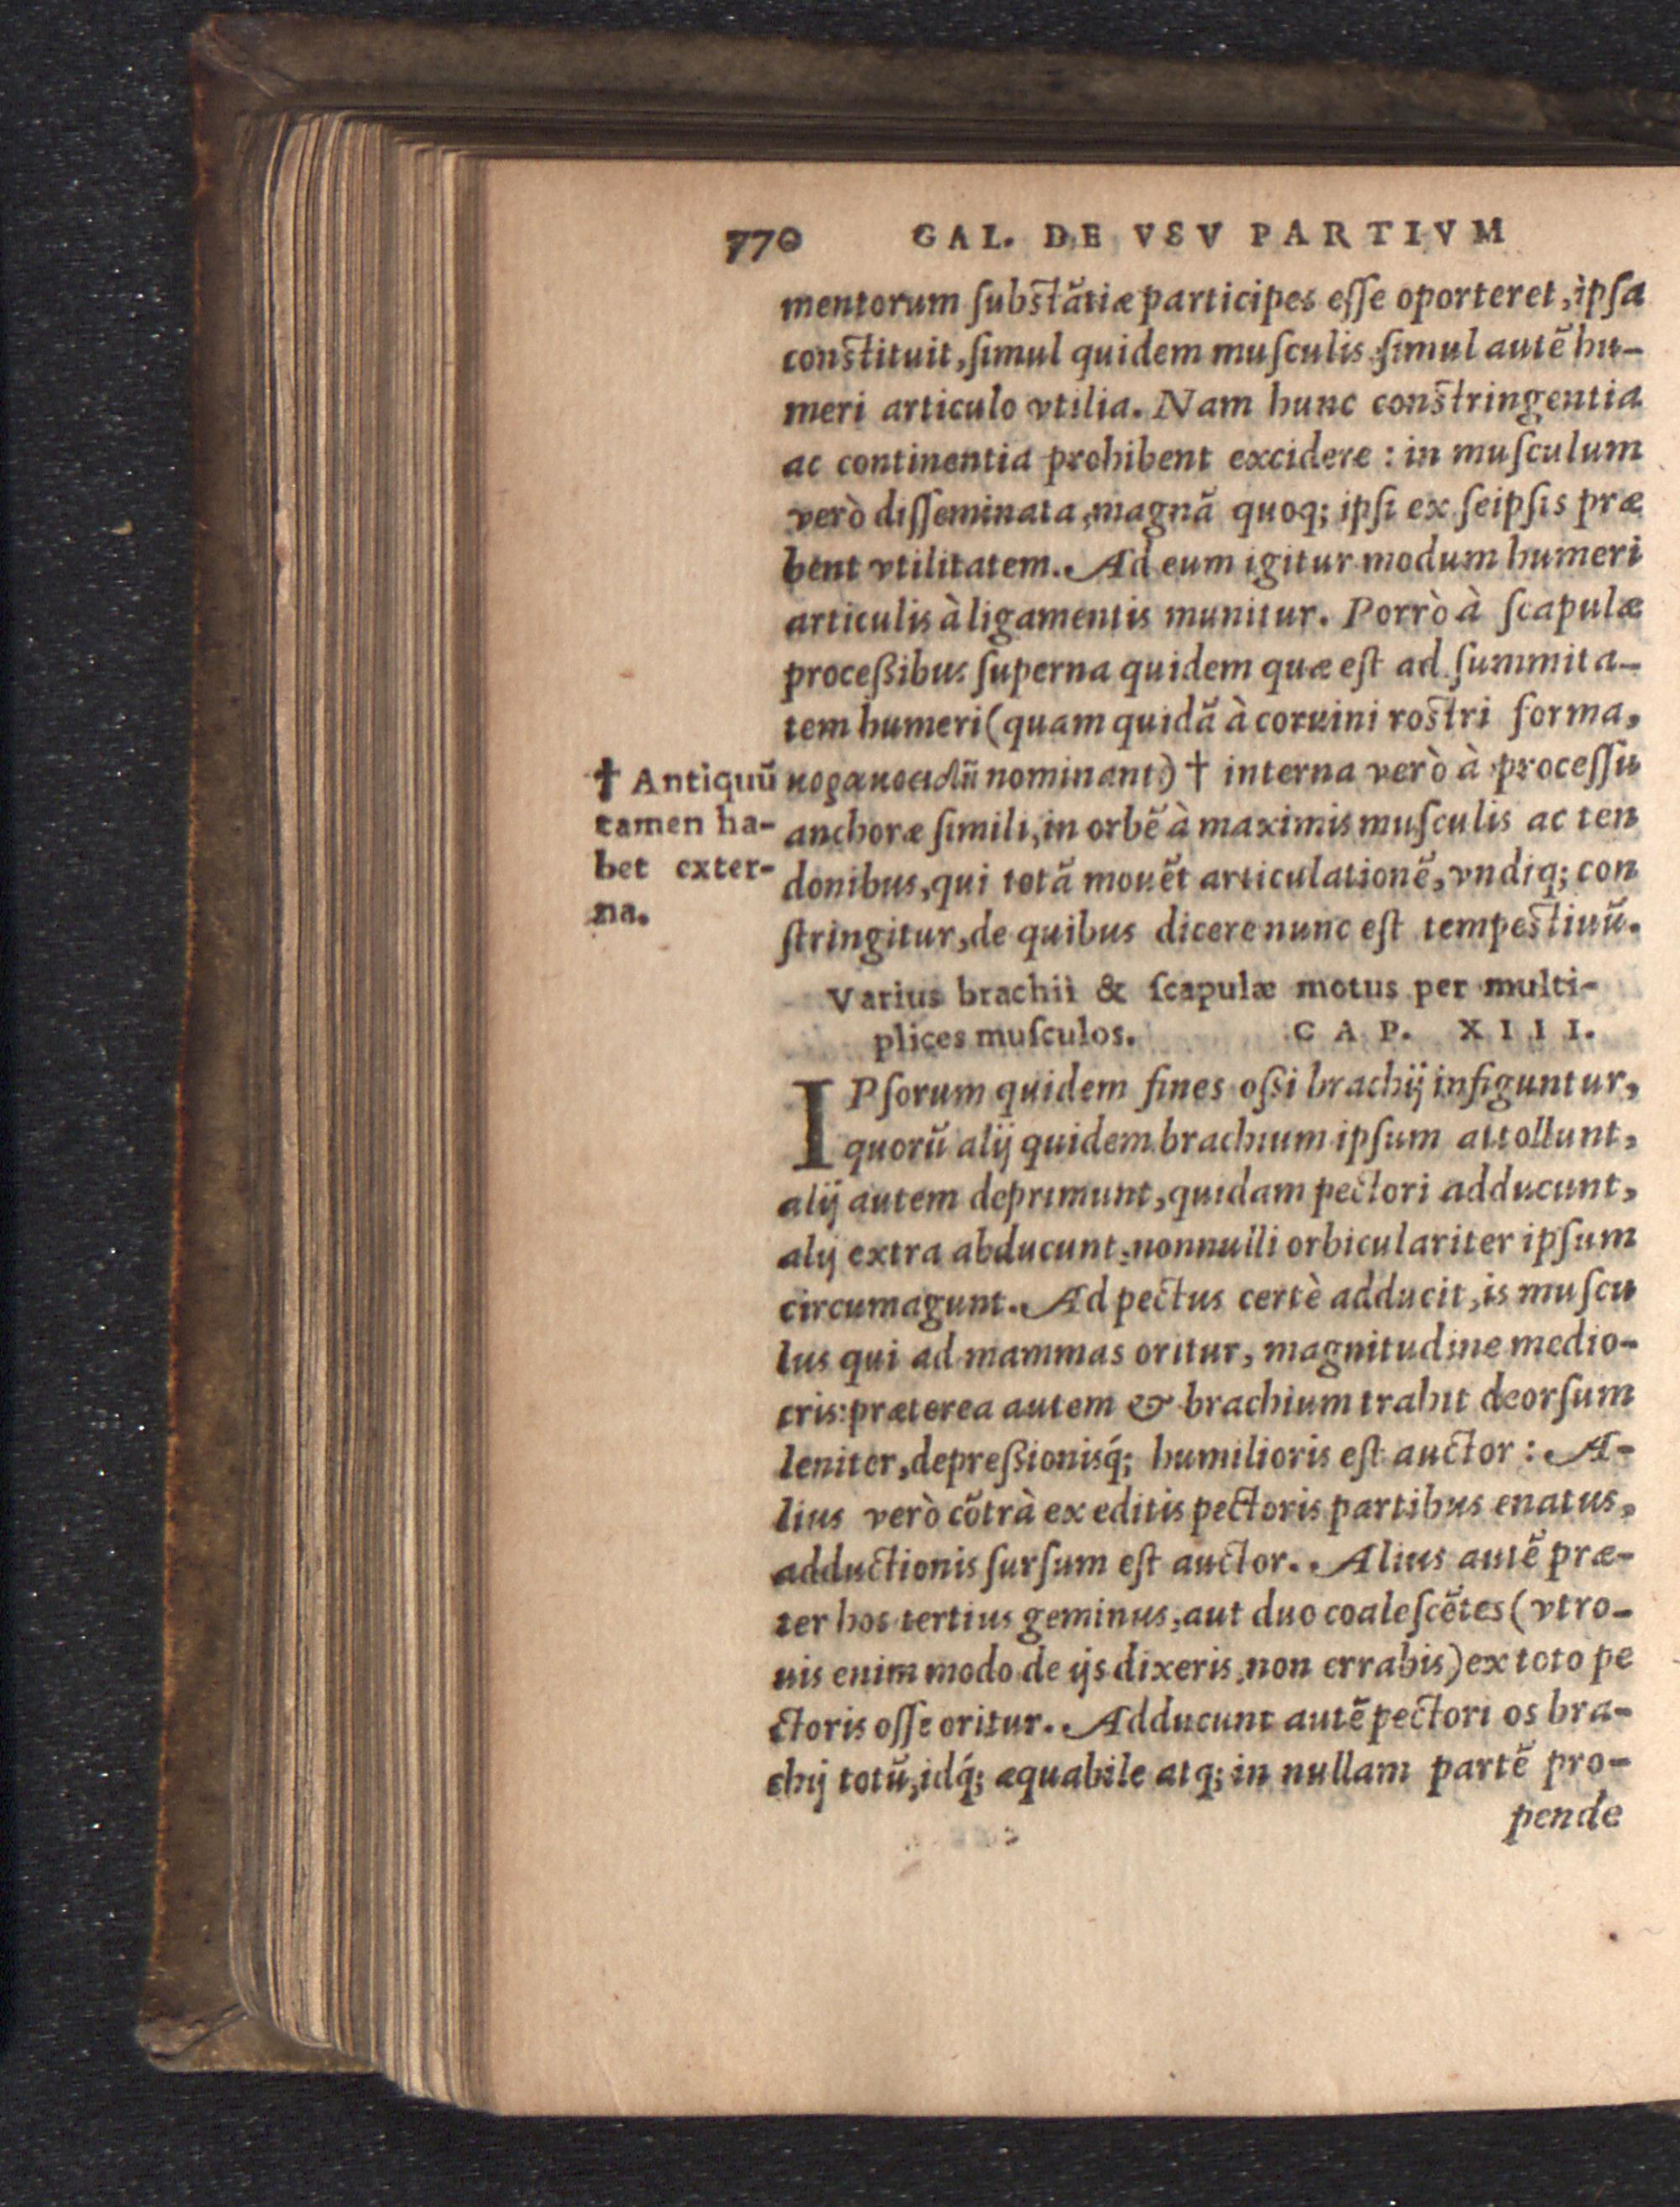 770 GAL. DE VSV PARTIVM
mentorum ſubſtãtiæ participes eſſe oporteret, ipſa
conſtituit, ſimul quidem muſculis ſimul autẽ hu-
meri articulo vtilia. Nam hunc conſtringentia
ac continentia prohibent excidere : in muſculum
verò diſſeminata, magnã quoq; ipſi ex ſeipſis præ
bent vtilitatem. Ad eum igitur modum humeri
articulis à ligamentis munitur. Porrò à ſcapulæ
proceßibus ſuperna quidem quæ eſt ad ſummita-
tem humeri (quam quidã à coruini roſtri forma,
nominant) † interna verò à proceſſu
anchoræ ſimili, in orbẽ à maximis muſculis ac ten
donibus, qui totã mouẽt articulationẽ, vndiq; con
ſtringitur, de quibus dicere nunc eſt tempeſtiuũ.
† Antiquũ
tamen ha-
bet exter-
na.
Varius brachii & ſcapulæ motus per multi-
plices muſculos. CAP. XIIII.
IPſorum quidem fines oßi brachij infiguntur,
quorũ alij quidem brachium ipſum attollunt,
alij autem deprimunt, quidam pectori adducunt,
alij extra abducunt, nonnulli orbiculariter ipſum
circumagunt. Ad pectus certè adducit, is muſcu
lus qui ad mammas oritur, magnitudine medio-
cris: præterea autem & brachium trahit deorſum
leniter, depreßionisq́; humilioris eſt auctor : A-
lius verò cõtrà ex editis pectoris partibus enatus,
adductionis ſurſum eſt auctor. Alius autẽ præ-
ter hos tertius geminus, aut duo coaleſcẽtes (vtro-
uis enim modo de ijs dixeris, non errabis) ex toto pe
ctoris oſſe oritur. Adducunt autẽ pectori os bra-
chij totũ, idq́; æquabile atq; in nullam partẽ pro-
pende